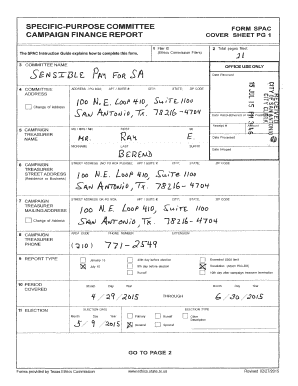 SPECIFIC-PURPOSE COMMITTEE
CAMPAIGN FINANCE REPORT
FORM SPAC
COVER SHEET PG 1
The SPAC Instruction Guide explains how to complete this form.
1 Filer ID
(Ethics Commission Filers)
2 Total pages filed:
3 COMMITTEE NAME
SENSIBLE PAM FOR SA
OFFICE USE ONLY
Date Received
4 COMMITTEE ADDRESS
ADDRESS / PO BOX; APT / SUITE #; CITY; STATE; ZIP CODE
100 N.E. LOOP 410, SUITE 1100
SAN ANTONIO, TX. 78216-4704
Change of Address
RECEIVED
CITY OF SAN ANTONIO
CITY CLERK
5 CAMPAIGN TREASURER NAME
MS / MRS / MR FIRST MI
MR. RAY E
NICKNAME LAST SUFFIX
BEREND
Date Processed
Date Imaged
6 CAMPAIGN TREASURER STREET ADDRESS
(Residence or Business)
STREET ADDRESS (NO PO BOX PLEASE); APT / SUITE #; CITY; STATE; ZIP CODE
100 N.E. LOOP 410, SUITE 1100
SAN ANTONIO, TX. 78216-4704
7 CAMPAIGN TREASURER MAILING ADDRESS
STREET ADDRESS OR PO BOX; APT / SUITE #; CITY; STATE; ZIP CODE
100 N.E. LOOP 410, SUITE 1100
SAN ANTONIO, TX. 78216-4704
Change of Address
8 CAMPAIGN TREASURER PHONE
AREA CODE PHONE NUMBER EXTENSION
(210) 771-2549
9 REPORT TYPE
January 15
July 15
30th day before election
8th day before election
Runoff
Exceeded $500 limit
Dissolution (Attach PAC-DR)
10th day after campaign treasurer termination
10 PERIOD COVERED
Month Day Year
4/29/2015
THROUGH
Month Day Year
6/30/2015
11 ELECTION
ELECTION DATE
Month Day Year
5/9/2015
ELECTION TYPE
Primary
Runoff
Other
Description
General
Special
GO TO PAGE 2
Forms provided by Texas Ethics Commission
www.ethics.state.tx.us